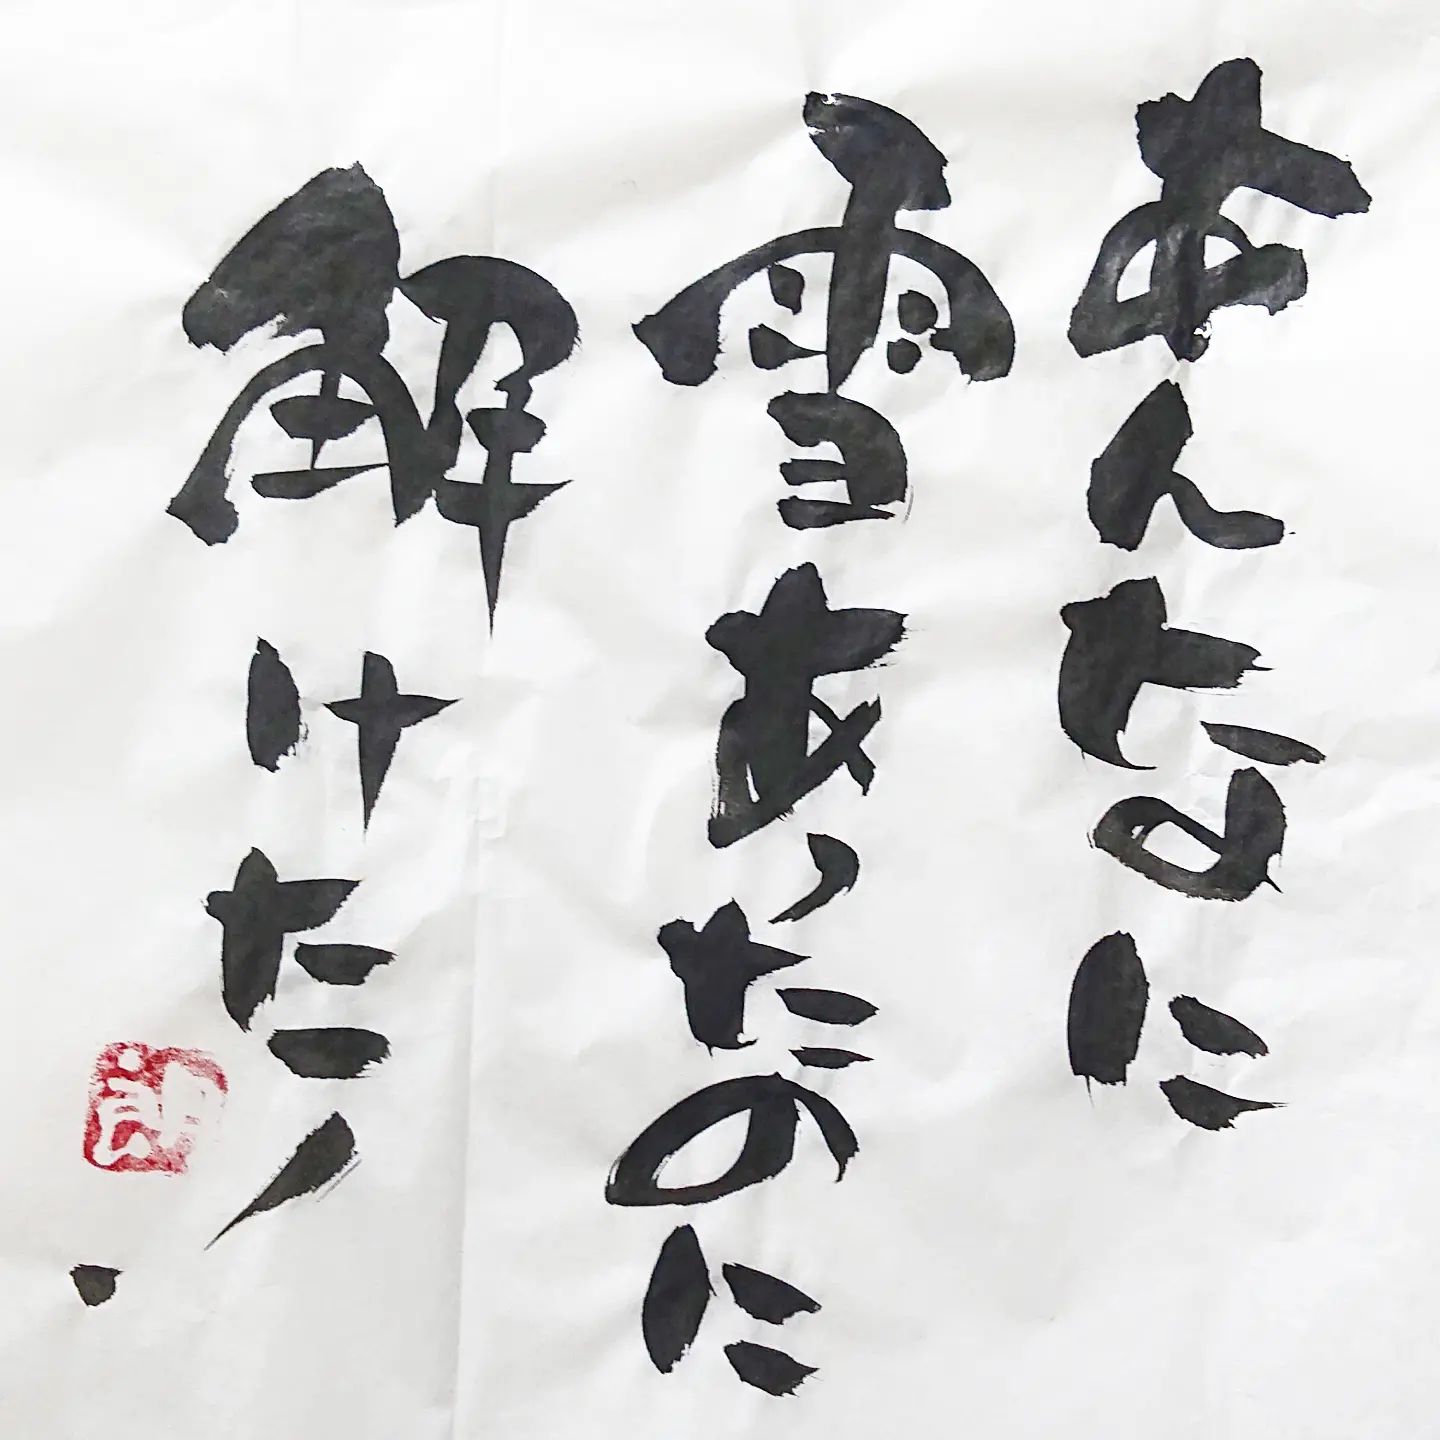 あんなに
雪あったのに
解けた！